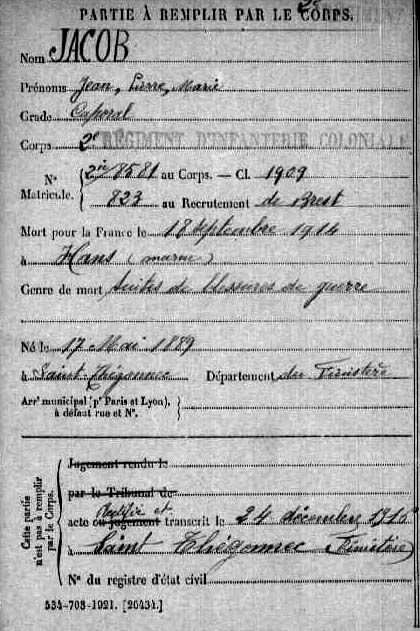 PARTIE À REMPLIR PAR LE CORPS.
Nom JACOB
Prénoms Jean, Pierre, Marie
Grade Caporal
Corps 2e RÉGIMENT D'INFANTERIE COLONIALE
N° Matricule. { 8581 au Corps. — Cl. 1909
823 au Recrutement de Brest
Mort pour la France le 18 septembre 1914
à Hans (marne)
Genre de mort suites de blessures de guerre
Né le 17 Mai 1889
à Saint-Thégonnec Département du Finistère
Arrt municipal (pr Paris et Lyon), à défaut rue et N°. }
Cette partie n'est pas à remplir par le Corps.
Jugement rendu le
par le Tribunal de
Rectifié et
acte ou jugement transcrit le 24 décembre 1916
à Saint Thégonnec Finistère
N° du registre d'état civil
534-708-1921. [26434.]